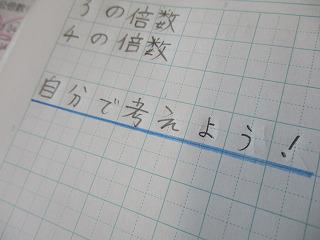 3の倍数
4の倍数
自分で考えよう!